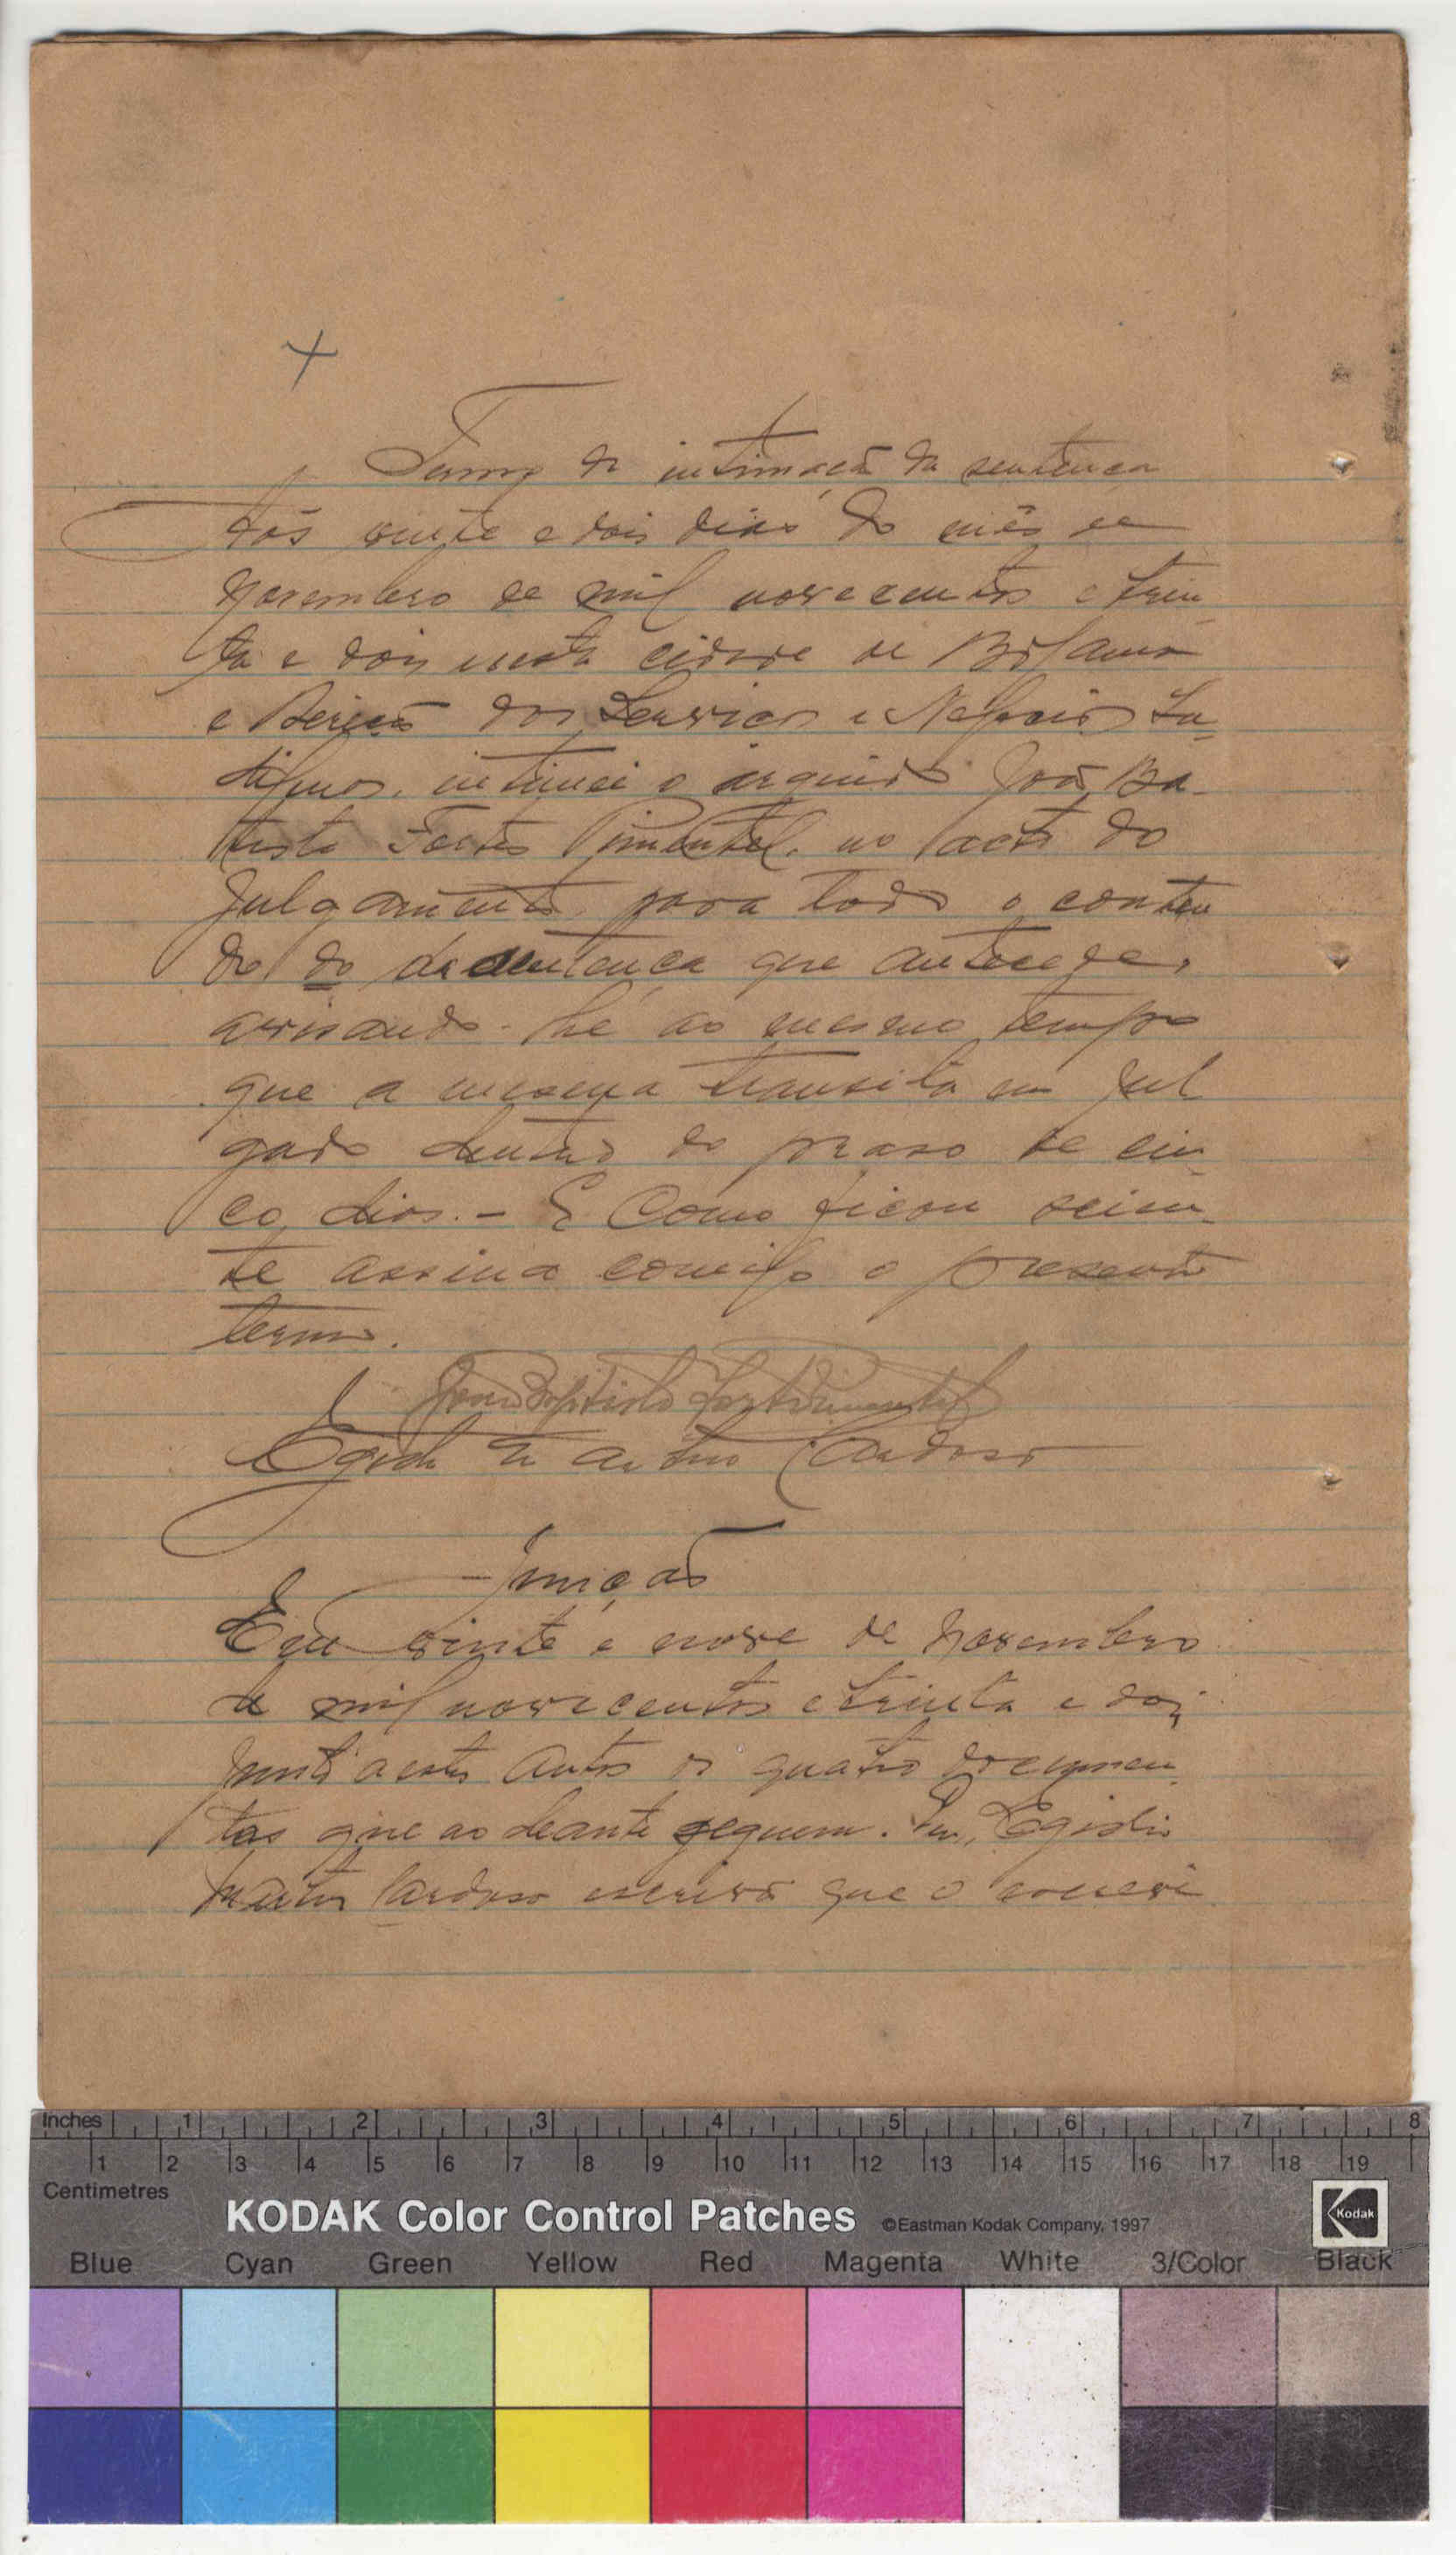 Termo de intimação da sentença
Aos vinte e dois dias do mês de
Novembro de mil novecentos e trin-
ta e dois nesta cidade de Bolama
e Secção dos Serviços e Negocios In-
digenas, intimei o arguido João Ba-
tista Fortes Pimentel, no acto do
julgamento, para todo o conteu
do da sentença que antecede,
avisando-lhe ao mesmo tempo
que a mesma transita em jul
gado dentro do praso de cin-
co dias. - E como ficou scien-
te assina comigo o presente
termo.
João Baptista Fortes Pimentel
Egidio Cardoso
Junção
Em vinte e nove de Novembro
de mil novecentos e trinta e dois
junto a estes autos os quatro documen-
tos que ao deante seguem. Eu, Egidio
Cardoso escrivão que o escrevi
Inches 1 2 3 4 5 6 7 8
1 2 3 4 5 6 7 8 9 10 11 12 13 14 15 16 17 18 19
Centimetres
KODAK Color Control Patches ©Eastman Kodak Company, 1997 Kodak
Blue Cyan Green Yellow Red Magenta White 3/Color Black